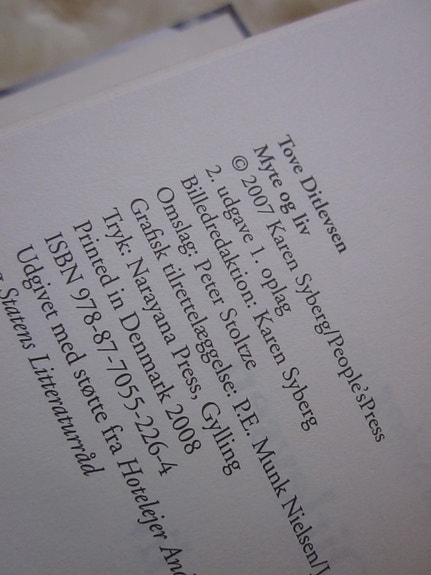 Tove Ditlevsen
Myte og liv
© 2007 Karen Syberg/People'sPress
2. udgave 1. oplag
Billedredaktion: Karen Syberg
Omslag: Peter Stoltze
Grafisk tilrettelæggelse: P.E. Munk Nielsen/
Tryk: Narayana Press, Gylling
Printed in Denmark 2008
ISBN 978-87-7055-226-4
Udgivet med støtte fra Hotelejer
Statens Litteraturråd